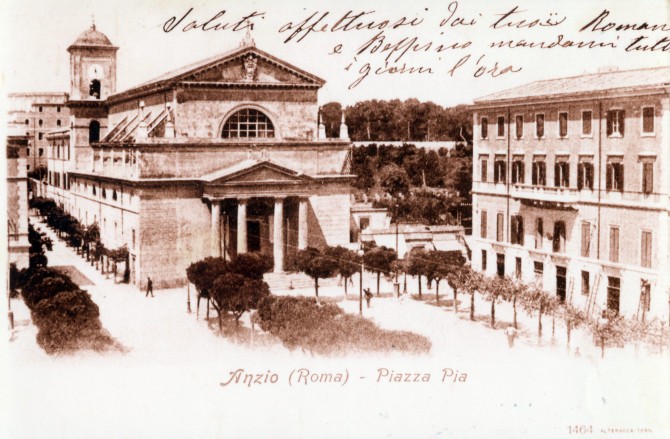 Saluti affettuosi dai tuoi Roman
e Beppino mandami tutti
i giorni l'ora
Anzio (Roma) - Piazza Pia
1464 ALTEROCCA-TERNI